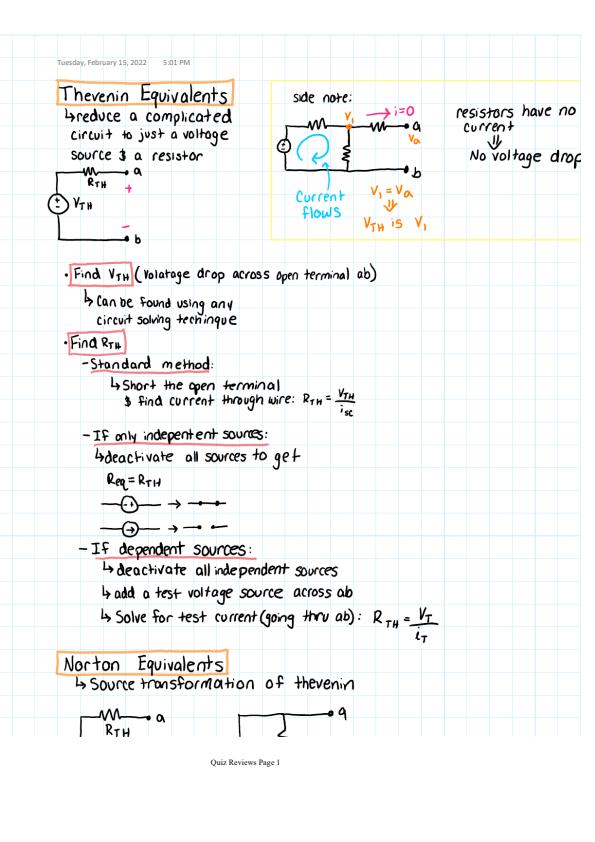 Tuesday, February 15, 2022 5:01 PM
Thevenin Equivalents
↳reduce a complicated
circuit to just a voltage
source $ a resistor
RTH
a
+
VTH
-
b
side note:
V1
i=0
a
Va
b
Current
flows
V1 = Va
⇓
VTH is V1
resistors have no
current
⇓
No voltage drop
• Find VTH (Volatage drop across open terminal ab)
↳ Can be found using any
circuit solving techinque
• Find RTH
- Standard method:
↳ Short the open terminal
$ find current through wire: RTH = VTH/isc
- If only indepentent sources:
↳deactivate all sources to get
Req = RTH
- If dependent sources:
↳ deactivate all independent sources
↳ add a test voltage source across ab
↳ Solve for test current (going thru ab): RTH = VT/iT
Norton Equivalents
↳ Source transformation of thevenin
a
RTH
a
Quiz Reviews Page 1